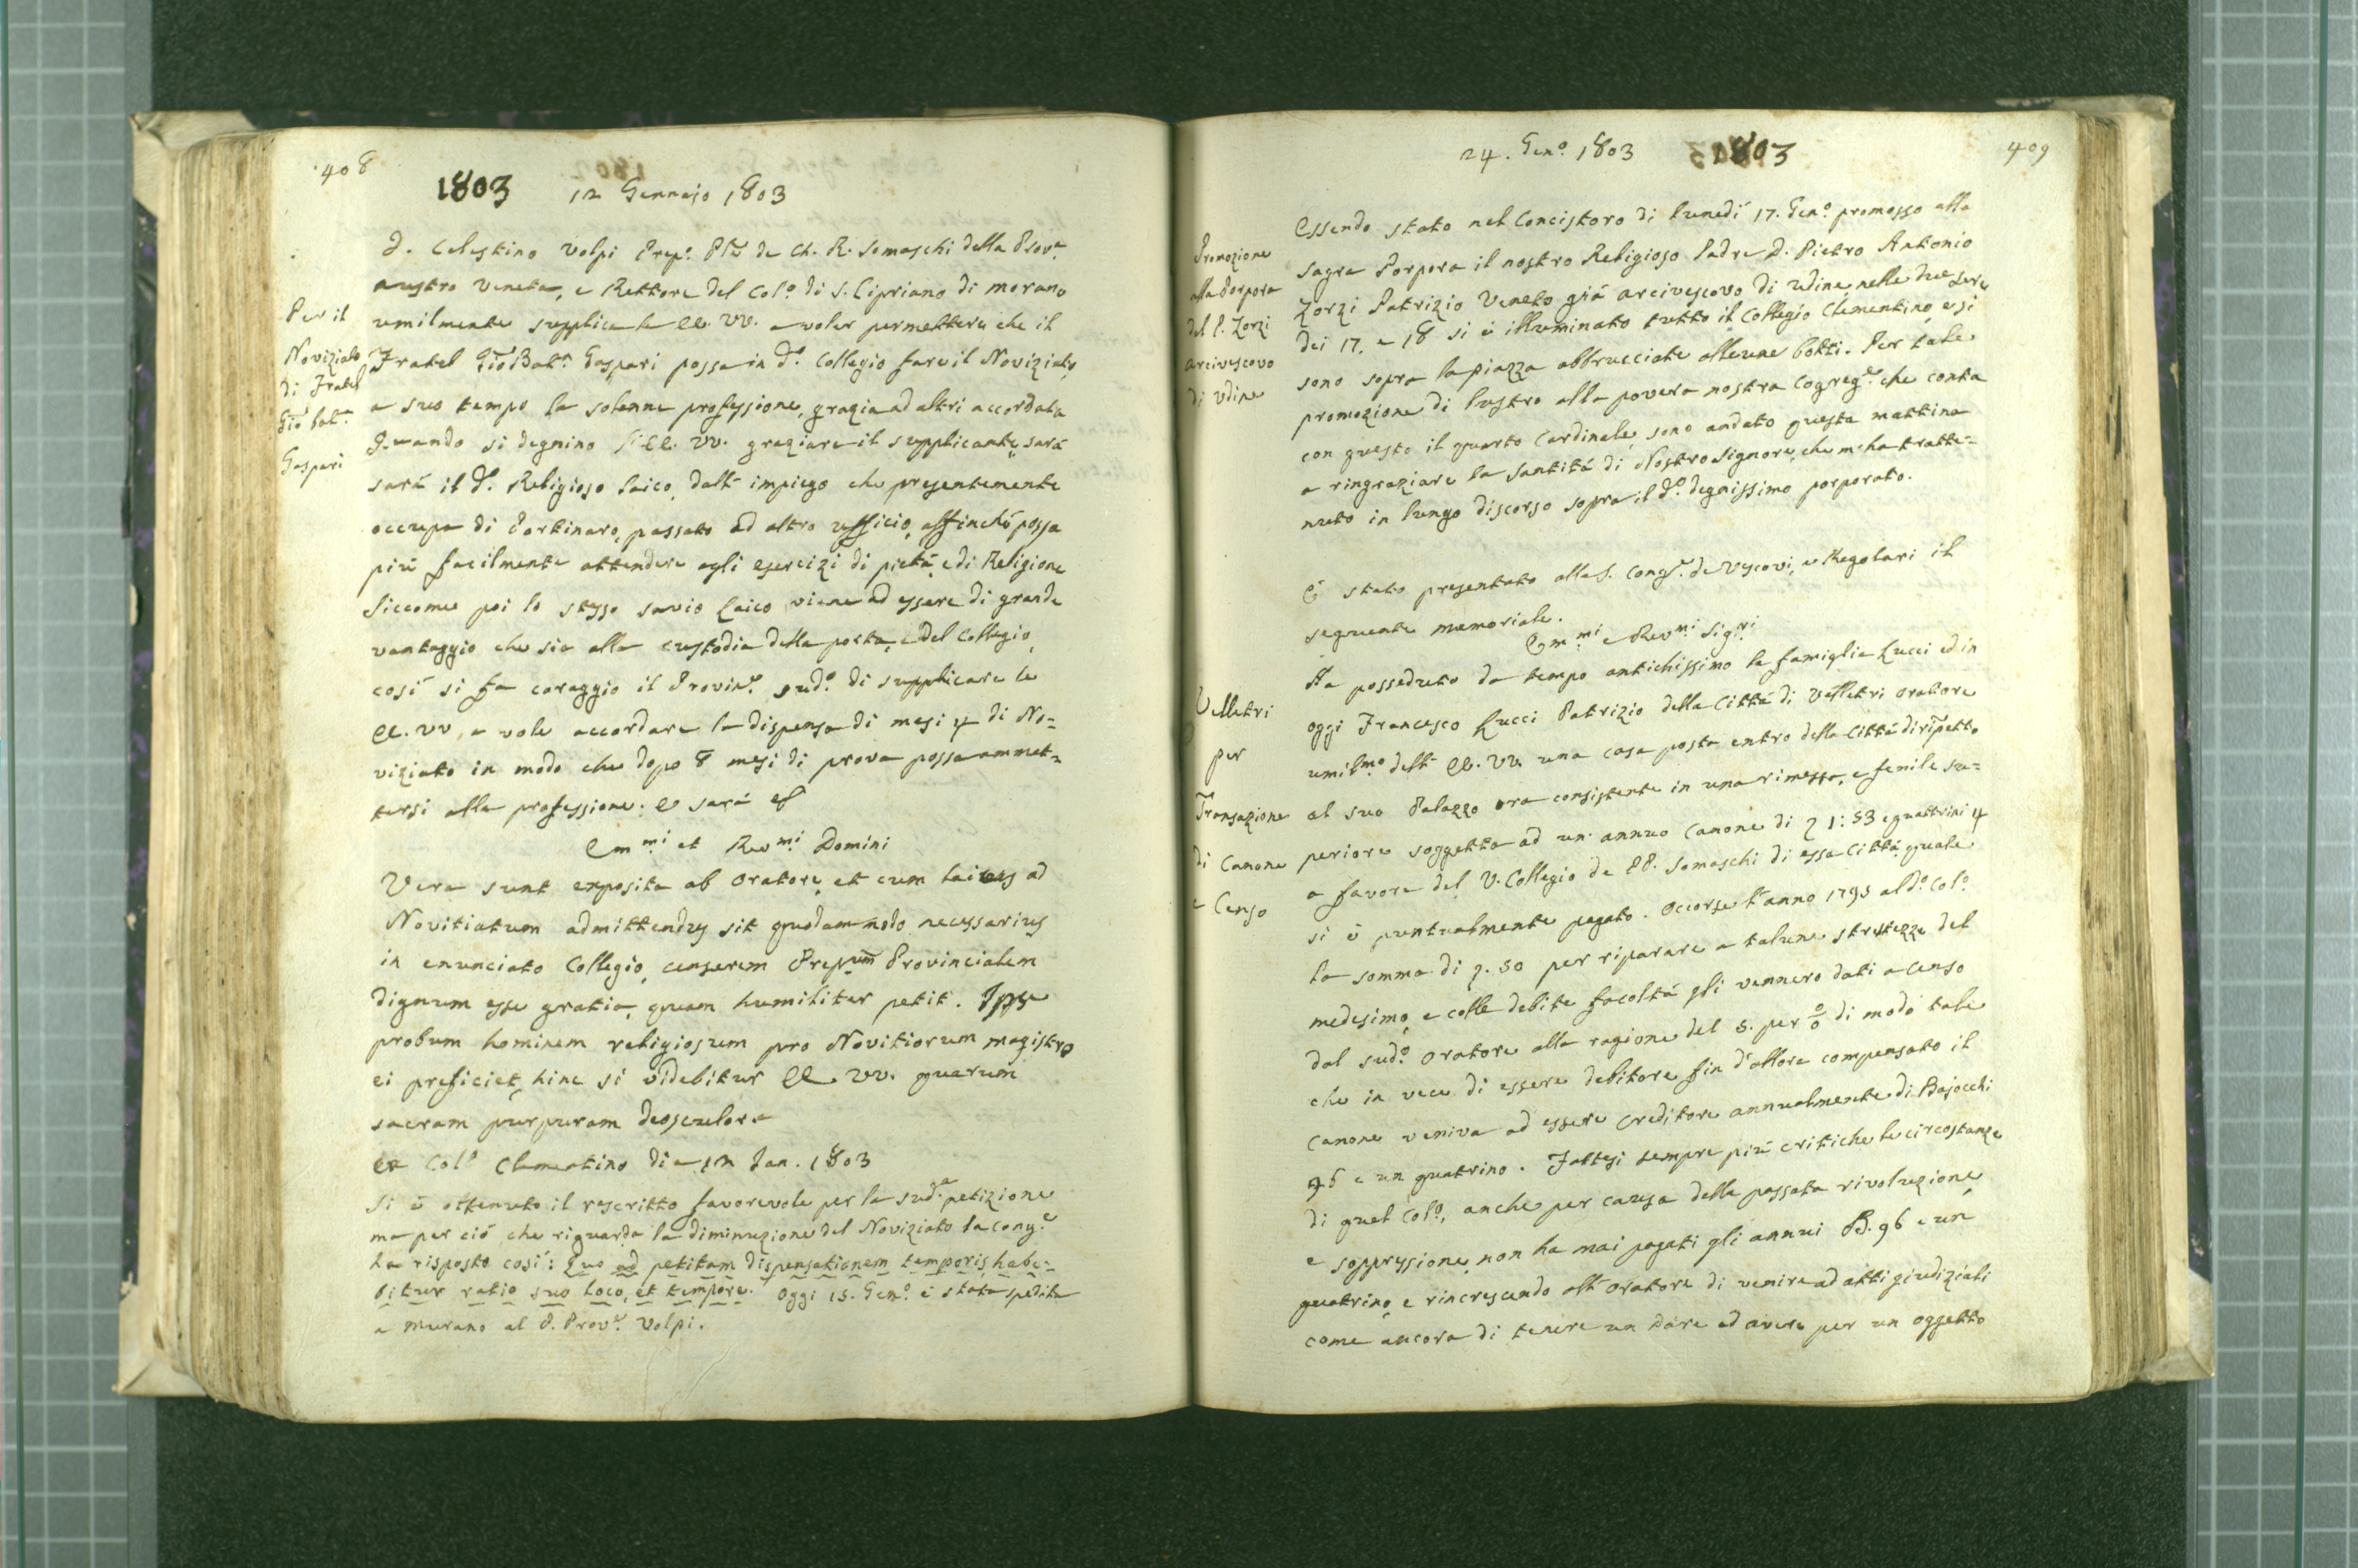 408
1803 12 Gennajo 1803
D. Celestino Volpi Prep.o Ple de Ch. R. Somaschi della Prov.a
austro Veneta, e Rettore del Col.o di S. Cipriano di Morano
umilmente supplica le EE. VV. a voler permettere che il
Fratel Gio Bat.a Gaspari possa in d.o Collegio fare il Noviziato,
a suo tempo la solenne professione, grazia ad altri accordata
Quando si degnino l'EE. VV. graziare il supplicante, sará
sará il d.o Religioso laico, dall' impiego che presentemente
occupa di Portinaro, passato ad altro ufficio, affinché possa
piú facilmente attendere agli esercizi di pietá, e di Religione
Siccome poi lo stesso savio laico viene ad essere di grande
vantaggio che sia alla custodia della porta, e del Collegio,
cosí si fa coraggio il Provin.e sud.o di supplicare le
EE. VV. a vole accordare la dispensa di mesi 4 di No=
viziato in modo che dopo 8 mesi di prova possa ammet=
tersi alla professione. e sará
Per il
Noviziato
di Fratel
Gio bat.a
Gaspari
Em.mi et Rev.mi Domini
Vera sunt exposita ab Oratore, et cum laicus ad
Novitiatum admittendus sit quodammodo necessarius
in enunciato Collegio, censerem Prep.um Provincialem
dignum esse gratia, quam humiliter petit. Ipse
probum hominem religiosum pro Novitiorum magistro
ei preficiet, hinc si videbitur EE. VV. quarum
sacram purpuram deosculor
Ex Col.o Clementino die 12 Jan. 1803
Si é ottenuto il rescritto favorevole per la sud.a petizione
ma per ció che riguarda la diminuzione del Noviziato la Cong.e
ha risposto cosí: Quo ad petitam dispensationem temporis habe=
bitur ratio suo loco, et tempore. Oggi 15. Gen.o é stata spedita
a Murano al P. Prov.e Volpi.
24. Gen.o 1803 1803 409
Essendo stato nel Concistoro di lunedí 17. Gen.o promosso alla
sagra Porpora il nostro Religioso Padre D. Pietro Antonio
Zorzi Patrizio Veneto giá arcivescovo di Udine nelle due sere
dei 17. e 18 si é illuminato tutto il Collegio Clementino, e si
sono sopra la piazza abbrucciate alleune botti. Per tale
promozione di lustro alla povera nostra Cogreg.e che conta
con questo il quarto Cardinale, sono andato questa mattina
a ringraziare la Santitá di Nostro Signore, che m'ha tratte=
nuto in lungo discorso sopra il d.o degnissimo porporato.
Promozione
alla Porpora
del P. Zorzi
arcivescovo
di Udine
É stato presentato alla S. Cong.e de Vescovi, e Regolari il
seguente memoriale.
Em.mi e Rev.mi Sig.ri
Ha posseduto da tempo antichissimo la famiglia Lucci ed in
oggi Francesco Lucci Patrizio della Cittá di Velletri oratore
umil.mo dell' EE. VV. una casa posta entro della Cittá dirispetto
al suo Palazzo ora consistente in una rimessa, e fenile su=
periore soggetta ad un annuo Canone di 1:53 e quattrini 4
a favore del V. Collegio de PP. Somaschi di essa Cittá, quale
si é puntualmente pagato. Occorse l'anno 1795 al d.o Col.o
la somma di 50 per riparare a talune strettezze del
medesimo, e colle debite facoltá gli vennero dati a Censo
dal sud.o Oratore alla ragione del 5. per 0/0 di modo tale
che in vece di essere debitore fin d'allora compensato il
Canone veniva ad essere Creditore annualmente di Bajocchi
96 e un quatrino. Fattesi sempre piú critiche le circostanze
di quel Col.o, anche per causa della passata rivoluzione,
e soppressione, non ha mai pagati gli annui B. 96 e un
quatrino, e rincrescendo all' Oratore di venire ad atti giudiziali
come ancora di tenere un Dare ed avere per un oggetto
Velletri
per
Transazione
di Canone
e Censo